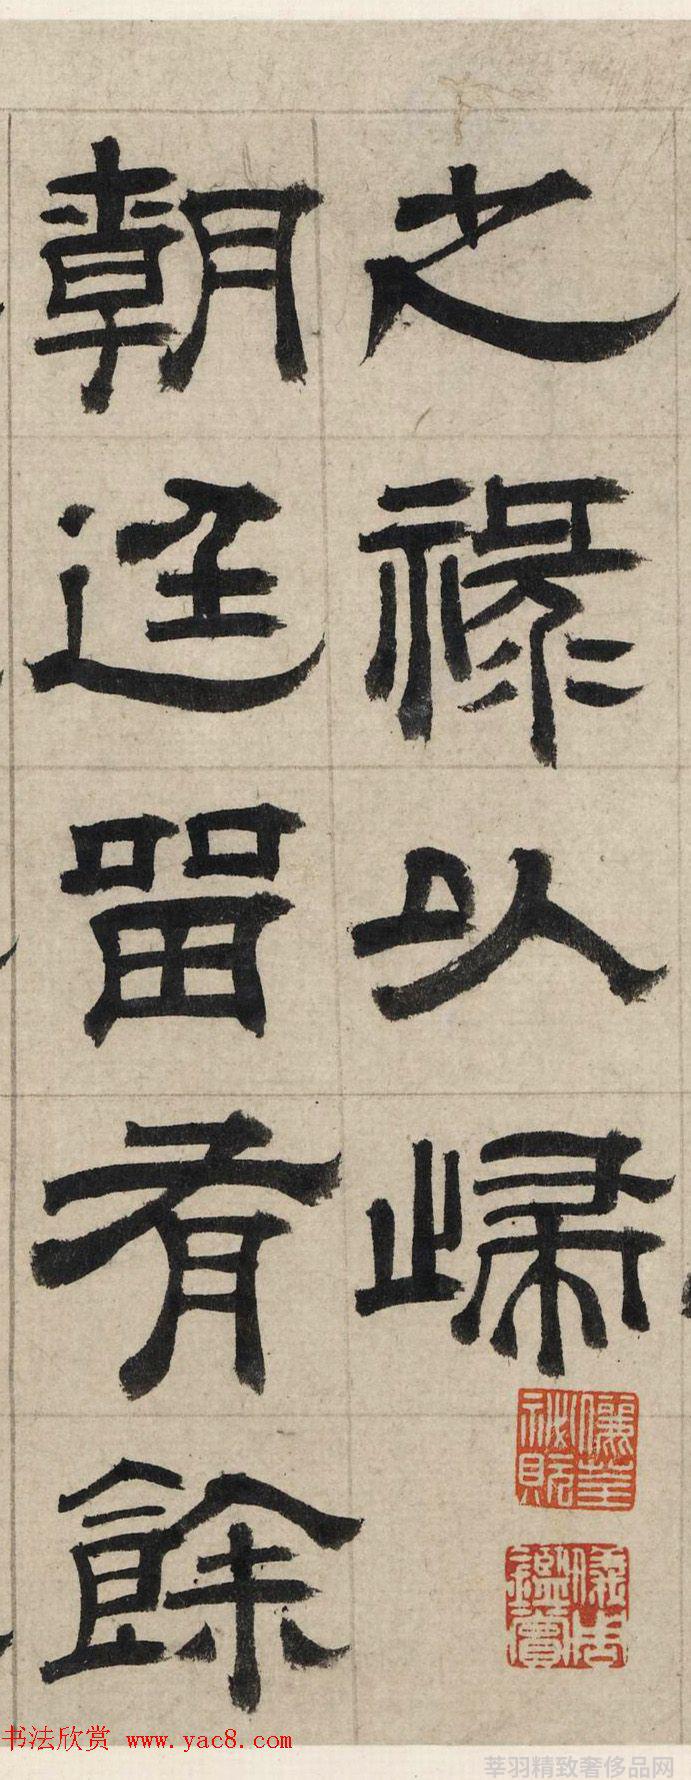 之祿以歸
朝廷留有餘
书法欣赏 www.yac8.com
莘羽精致奢侈品网